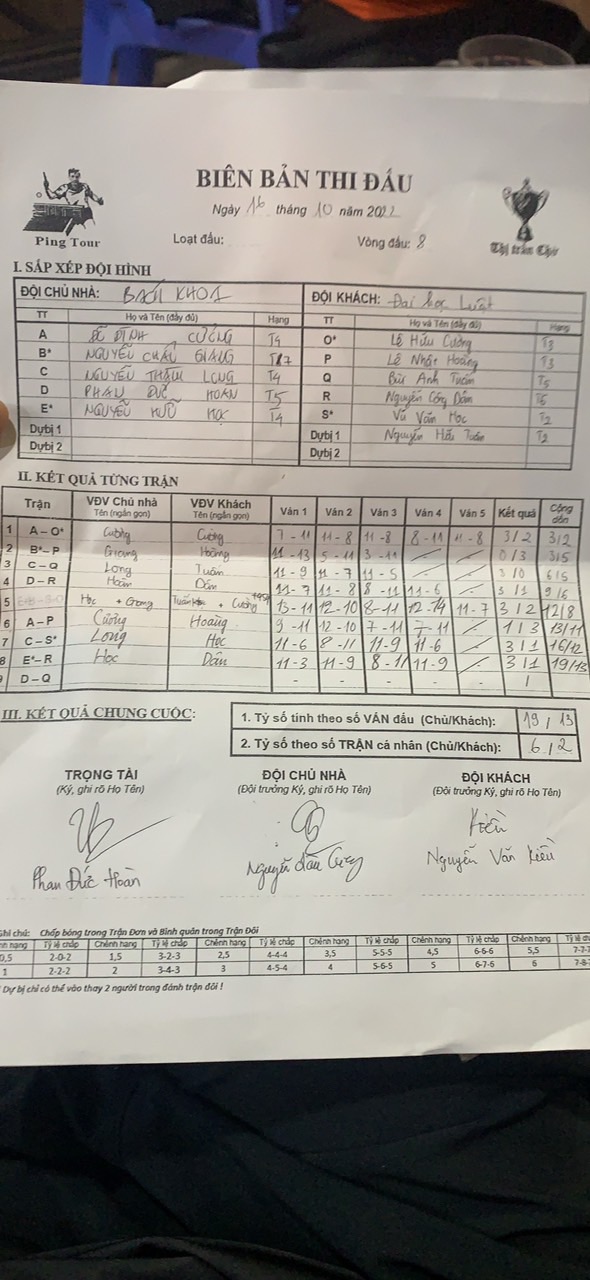 BIÊN BẢN THI ĐẤU
Ngày 16 tháng 10 năm 2022
Ping Tour
Loạt đấu:
Vòng đấu: 8
Thị trấn Chờ
I. SẮP XẾP ĐỘI HÌNH
ĐỘI CHỦ NHÀ: BÁCH KHOA ĐỘI KHÁCH: Đại học Luật
TT Họ và Tên (đầy đủ) Hạng TT Họ và Tên (đầy đủ) Hạng
A ĐỖ ĐÌNH CƯỜNG T4 O* Lê Hữu Cường T3
B* NGUYỄN CHÂU GIANG P Lê Nhật Hoàng T3
C NGUYỄN THÀNH LONG T4 Q Bùi Anh Tuấn T5
D PHAN ĐỨC HOÀN T5 R Nguyễn Công Dân T6
E* NGUYỄN HỮU HỌC T4 S* Vũ Văn Học T2
Dự bị 1 Dự bị 1 Nguyễn Tuấn T2
Dự bị 2 Dự bị 2
II. KẾT QUẢ TỪNG TRẬN
Trận VĐV Chủ nhà Tên (ngắn gọn) VĐV Khách Tên (ngắn gọn) Ván 1 Ván 2 Ván 3 Ván 4 Ván 5 Kết quả Cộng dồn
1 A – O* Cường Cường 7 - 11 11 - 8 11 - 8 8 - 11 11 - 8 3 / 2 3/2
2 B* – P Giang Hoàng 11 - 13 5 - 11 3 - 11 0 / 3 3/5
3 C – Q Long Tuấn 11 - 9 11 - 7 11 - 5 3 / 0 6/5
4 D – R Hoàn Dân 11 - 7 11 - 8 8 - 11 11 - 6 3 / 1 9/6
5 Học + Giang Tuấn + Cường 13 - 11 12 - 10 8 - 11 12 - 14 11 - 7 3 / 2 12/8
6 A – P Cường Hoàng 9 - 11 12 - 10 7 - 11 7 - 11 1 / 3 13/11
7 C – S* Long Học 11 - 6 8 - 11 11 - 9 11 - 6 3 / 1 16/12
8 E* – R Học Dân 11 - 3 11 - 9 8 - 11 11 - 9 3 / 1 19/13
D – Q - - - - /
III. KẾT QUẢ CHUNG CUỘC:
1. Tỷ số tính theo số VÁN đấu (Chủ/Khách): 19 / 13
2. Tỷ số theo số TRẬN cá nhân (Chủ/Khách): 6 / 2
TRỌNG TÀI ĐỘI CHỦ NHÀ ĐỘI KHÁCH
(Ký, ghi rõ Họ Tên) (Đội trưởng Ký, ghi rõ Họ Tên) (Đội trưởng Ký, ghi rõ Họ Tên)
Kiều
Phan Đức Hoàn Nguyễn Nguyễn Văn Kiều
Ghi chú: Chấp bóng trong Trận Đơn và Bình quân trong Trận Đôi
Chênh hạng Tỷ lệ chấp Chênh hạng Tỷ lệ chấp Chênh hạng Tỷ lệ chấp Chênh hạng Tỷ lệ chấp Chênh hạng Tỷ lệ chấp Chênh hạng Tỷ lệ
0,5 2-0-2 1,5 3-2-3 2,5 4-4-4 3,5 5-5-5 4,5 6-6-6 5,5
1 2-2-2 2 3-4-3 3 4-5-4 4 5-6-5 5 6-7-6 6
Dự bị chỉ có thể vào thay 2 người trong đánh trận đôi !